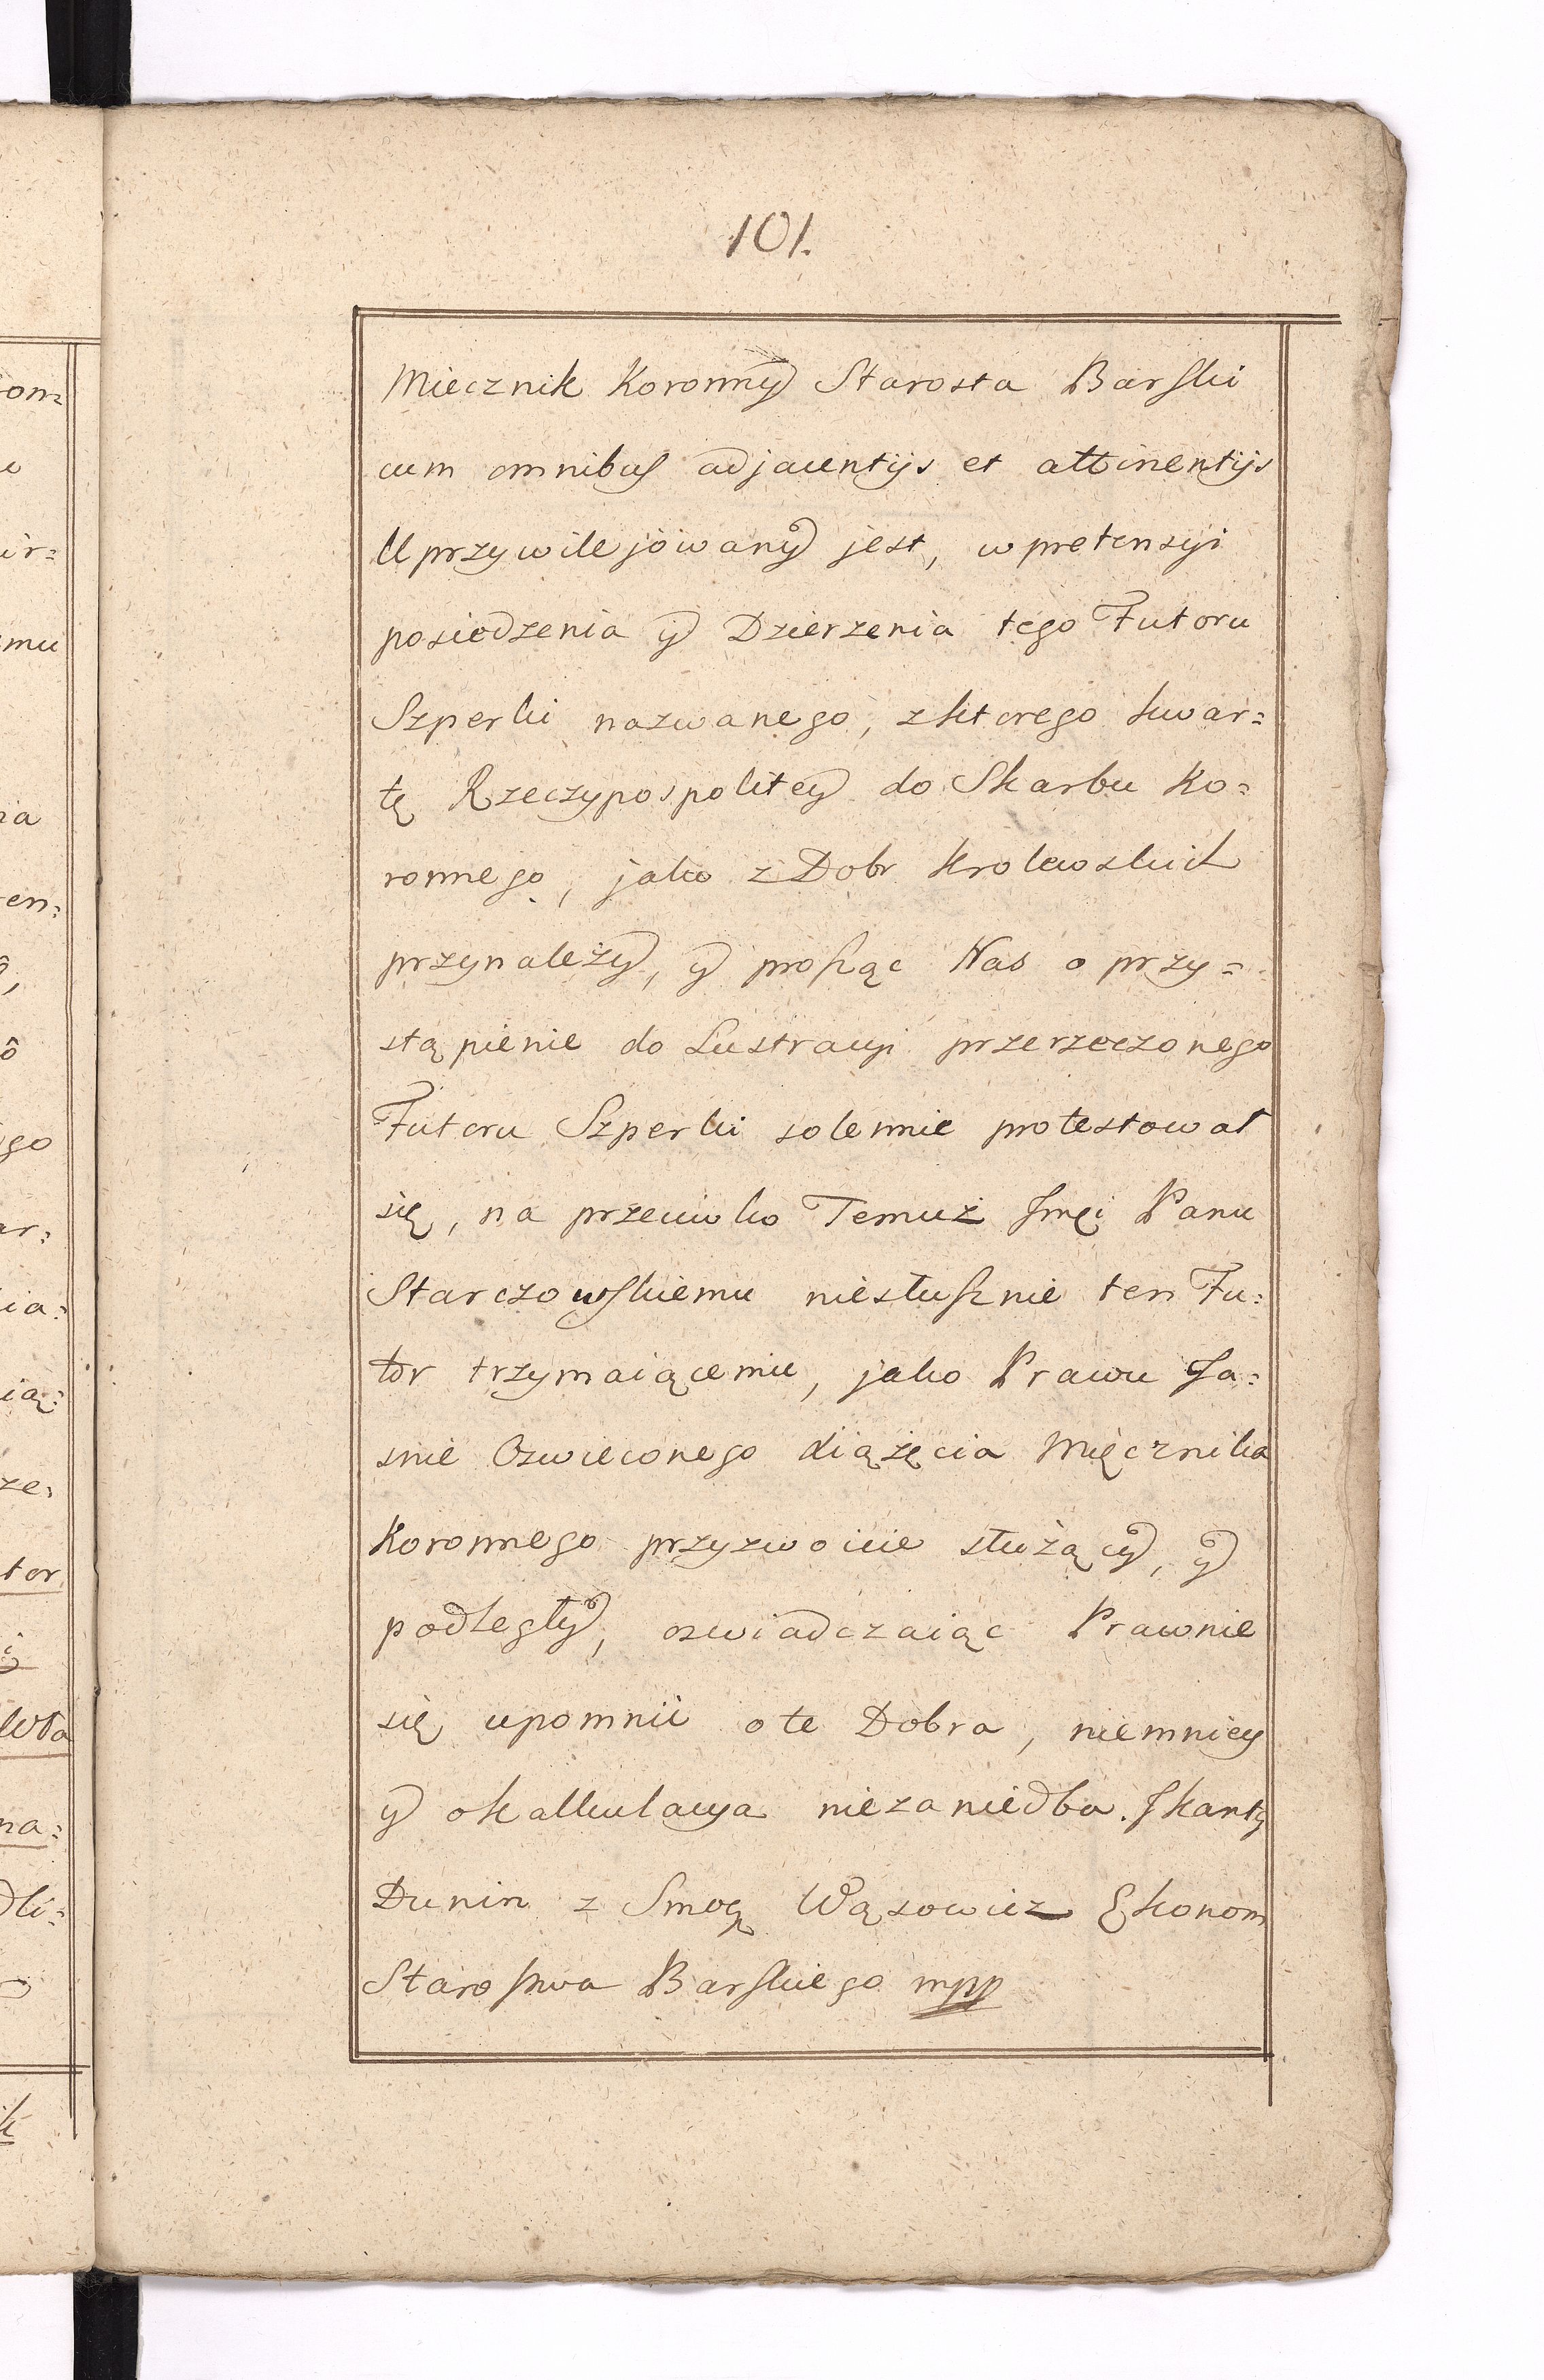 101.
Miecznik Koronny Starosta Barski
cum omnibus adjacentijs et attinentijs
Uprzywilejowany jest, w pretensyi
posiedzenia y Dzierzenia tego Futoru
Szperki nazwanego, z ktorego kwar=
tę Rzeczypospolitey do Skarbu Ko=
ronnego, jako z Dobr Krolewskich
przynależy, y prosząc Nas o przy=
stąpienie do Lustracyi przerzeczonego
Futoru Szperki solennie protestował
się, na przeciwko Temuż Jmci Panu
Starczowskiemu niesłusznie ten Fu=
tor trzymaiącemu, jako Prawu Ja=
snie Oswieconego Xiążęcia Mięcznika
Koronnego przyzwoicie służący, y
podległy, oswiadczaiąc Prawnie
się upomnii o te Dobra, niemniey
y o kalkulacya niezaniedba. J Kanty
Dunin z Smog Wąsowicz Ekonom
Starostwa Barskiego mpp